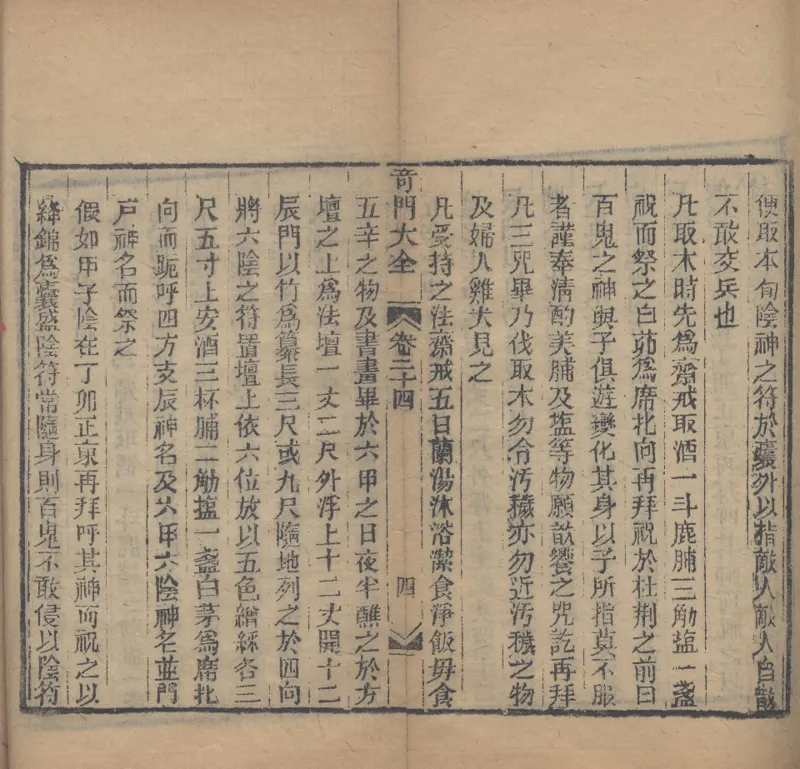 便取本旬陰神之符於囊外以指敵人敵人自散
不敢交兵也
凡取木時先爲齋戒取酒一斗鹿脯三觔塩一盞
祝而祭之白茆爲席北向再拜祝於杜荆之前曰
百鬼之神與子俱遊變化其身以子所指莫不服
者謹奉清酌美脯及塩等物願歆饗之咒訖再拜
凡三咒畢乃伐取木勿令汚穢亦勿近汚穢之物
及婦人雞犬見之
凡受持之法齋戒五日蘭湯沐浴潔食淨飯毋食
奇門大全 卷三十四 四
五辛之物及書畫畢於六甲之日夜半醮之於方
壇之上爲法壇一丈二尺外浮上十二丈開十二
辰門以竹爲纂長三尺或九尺隨地列之於四向
將六陰之符置壇上依六位放以五色繒綵各三
尺五寸上安酒三杯脯二觔塩一盞白茅爲席北
向而跪呼四方支辰神名及六甲六陰神名並門
戸神名而祭之
假如甲子陰在丁卯正東再拜呼其神而祝之以
絳錦爲囊盛陰符常隨身則百鬼不敢侵以陰符